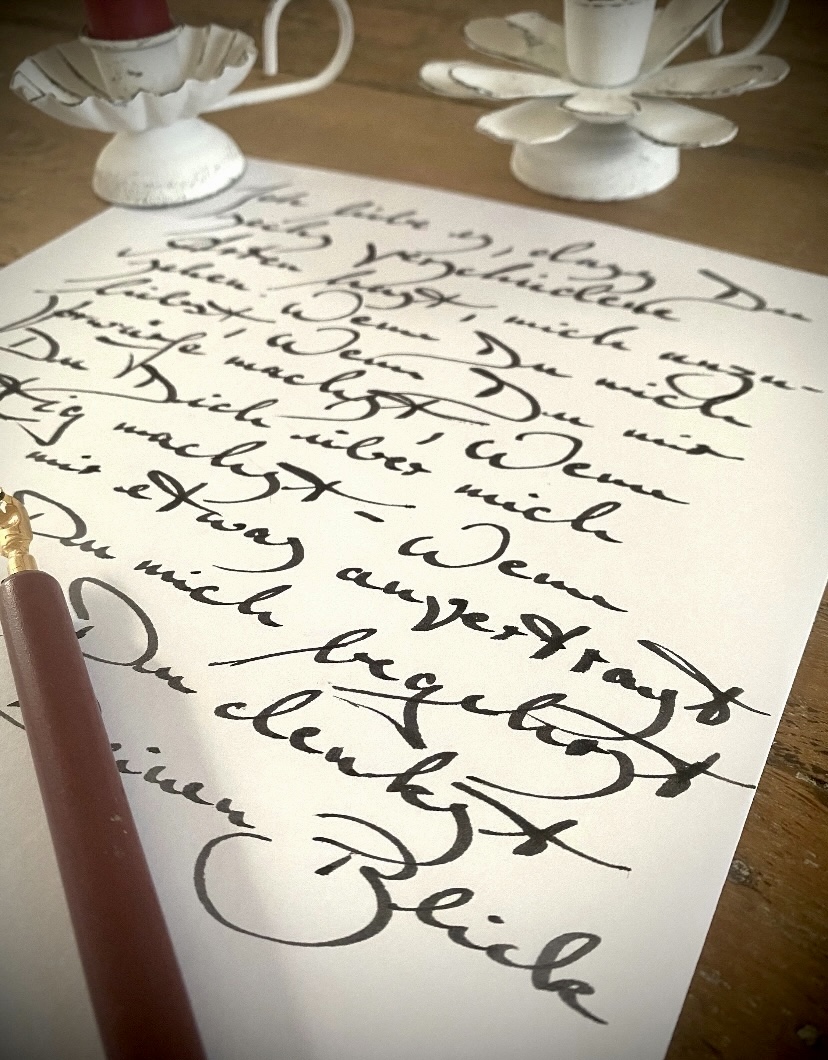 Ich liebe es, dass Du
sechs verschiedene
Arten hast, mich anzu-
sehen. Wenn Du mich
liebst, Wenn Du mir
Vorwürfe machst, Wenn
Du Dich über mich
tig machst - Wenn
mir etwas anvertraust
Du mich begehrst
Du denkst
einen Blick